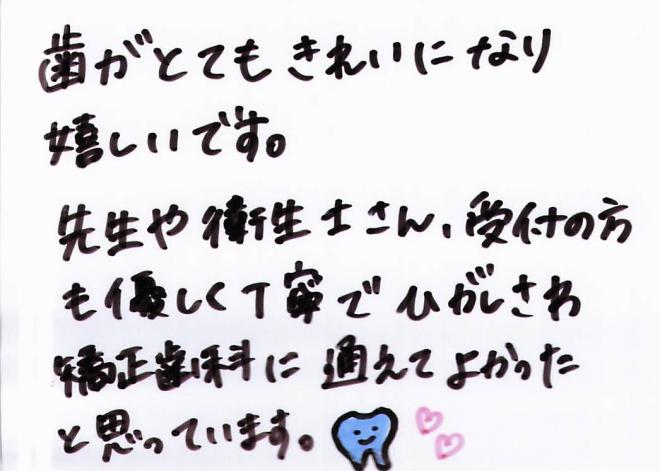 歯がとてもきれいになり
嬉しいです。
先生や衛生士さん、受付の方
も優しく丁寧でひがしさわ
矯正歯科に通えてよかった
と思っています。